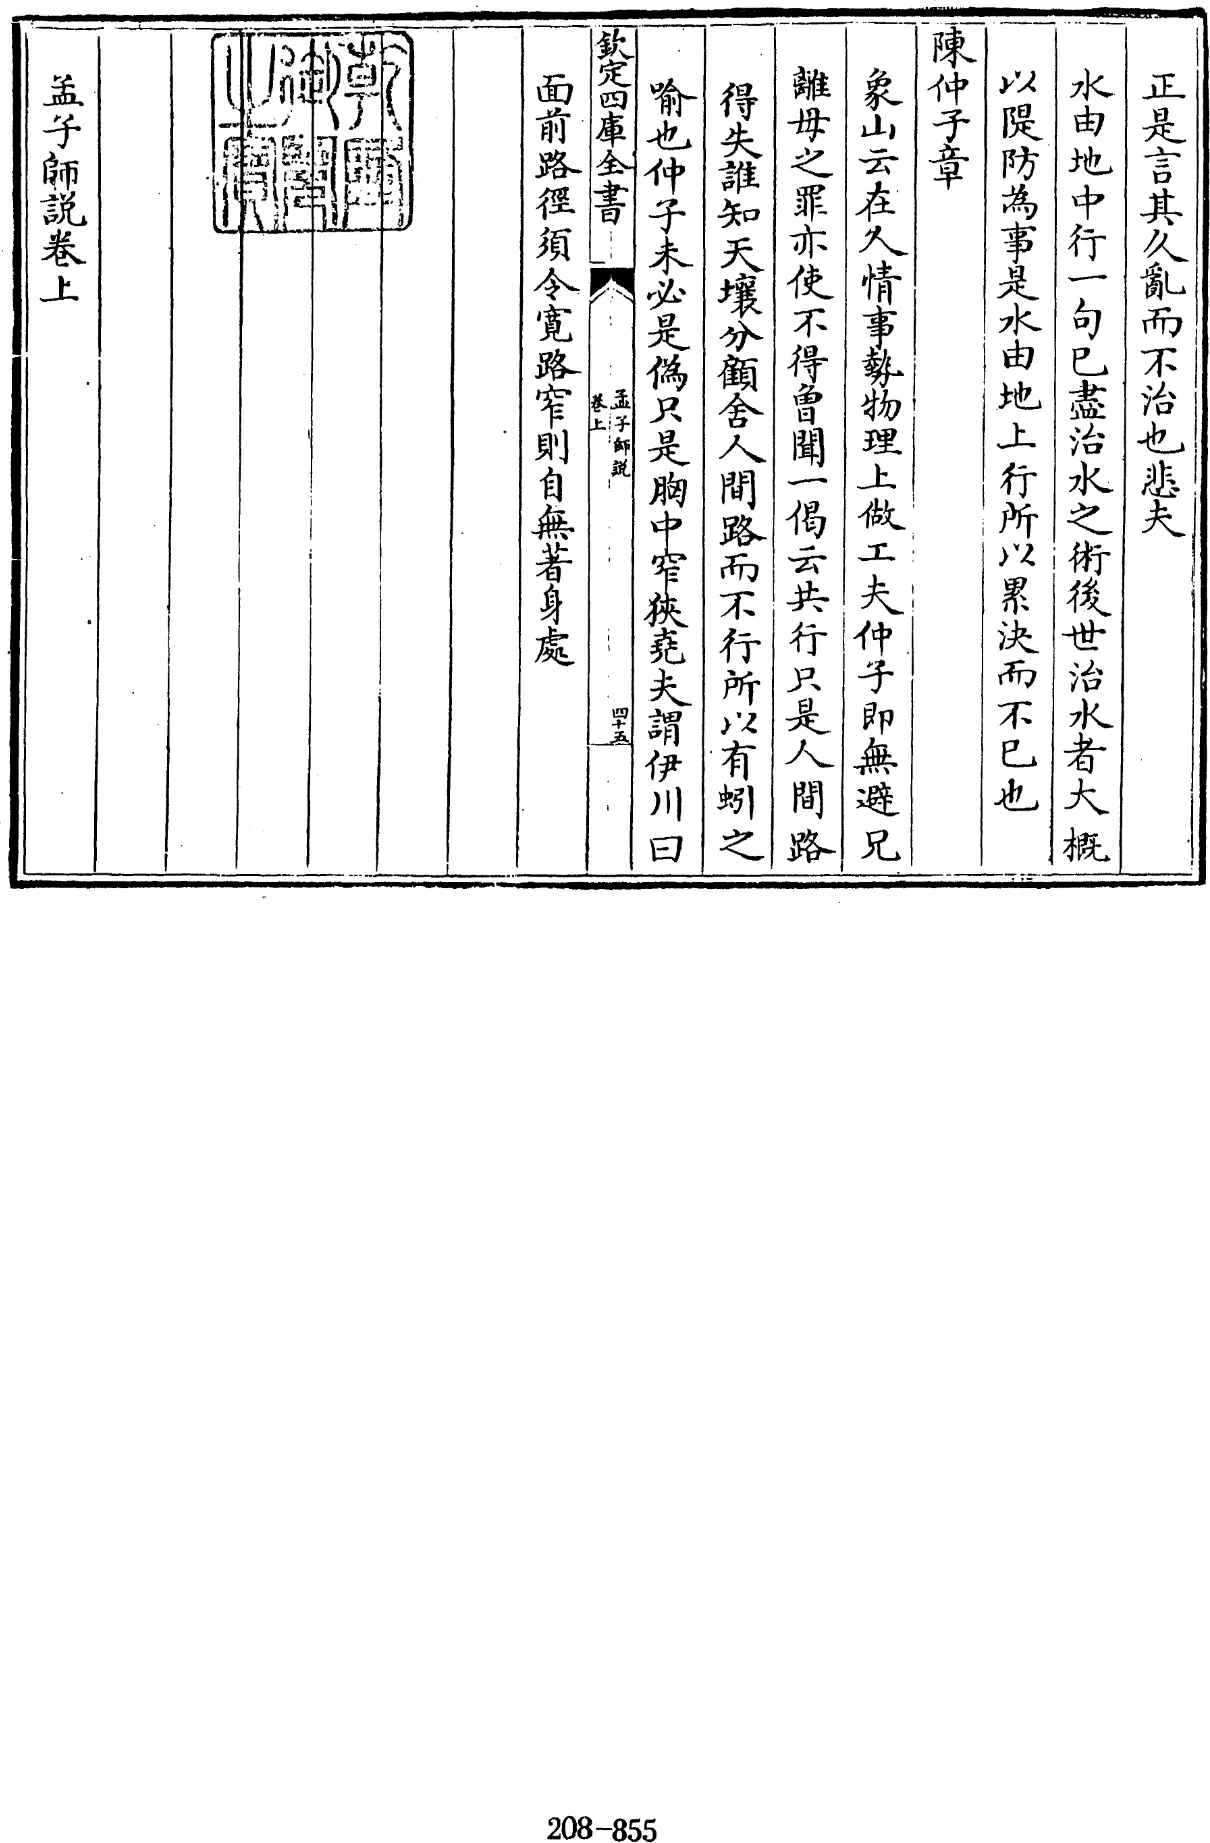 正是言其久亂而不治也悲夫
水由地中行一句已盡治水之術後世治水者大概
以隄防為事是水由地上行所以累決而不已也
陳仲子章
象山云在人情事勢物理上做工夫仲子即無避兄
離母之罪亦使不得曽聞一偈云共行只是人間路
得失誰知天壤分顧舍人間路而不行所以有蚓之
喻也仲子未必是僞只是胸中窄狹堯夫謂伊川曰
欽定四庫全書
孟子師說
卷上
四十五
面前路徑須令寛路窄則自無著身處
乾隆御覽之寶
孟子師説卷上
208-855